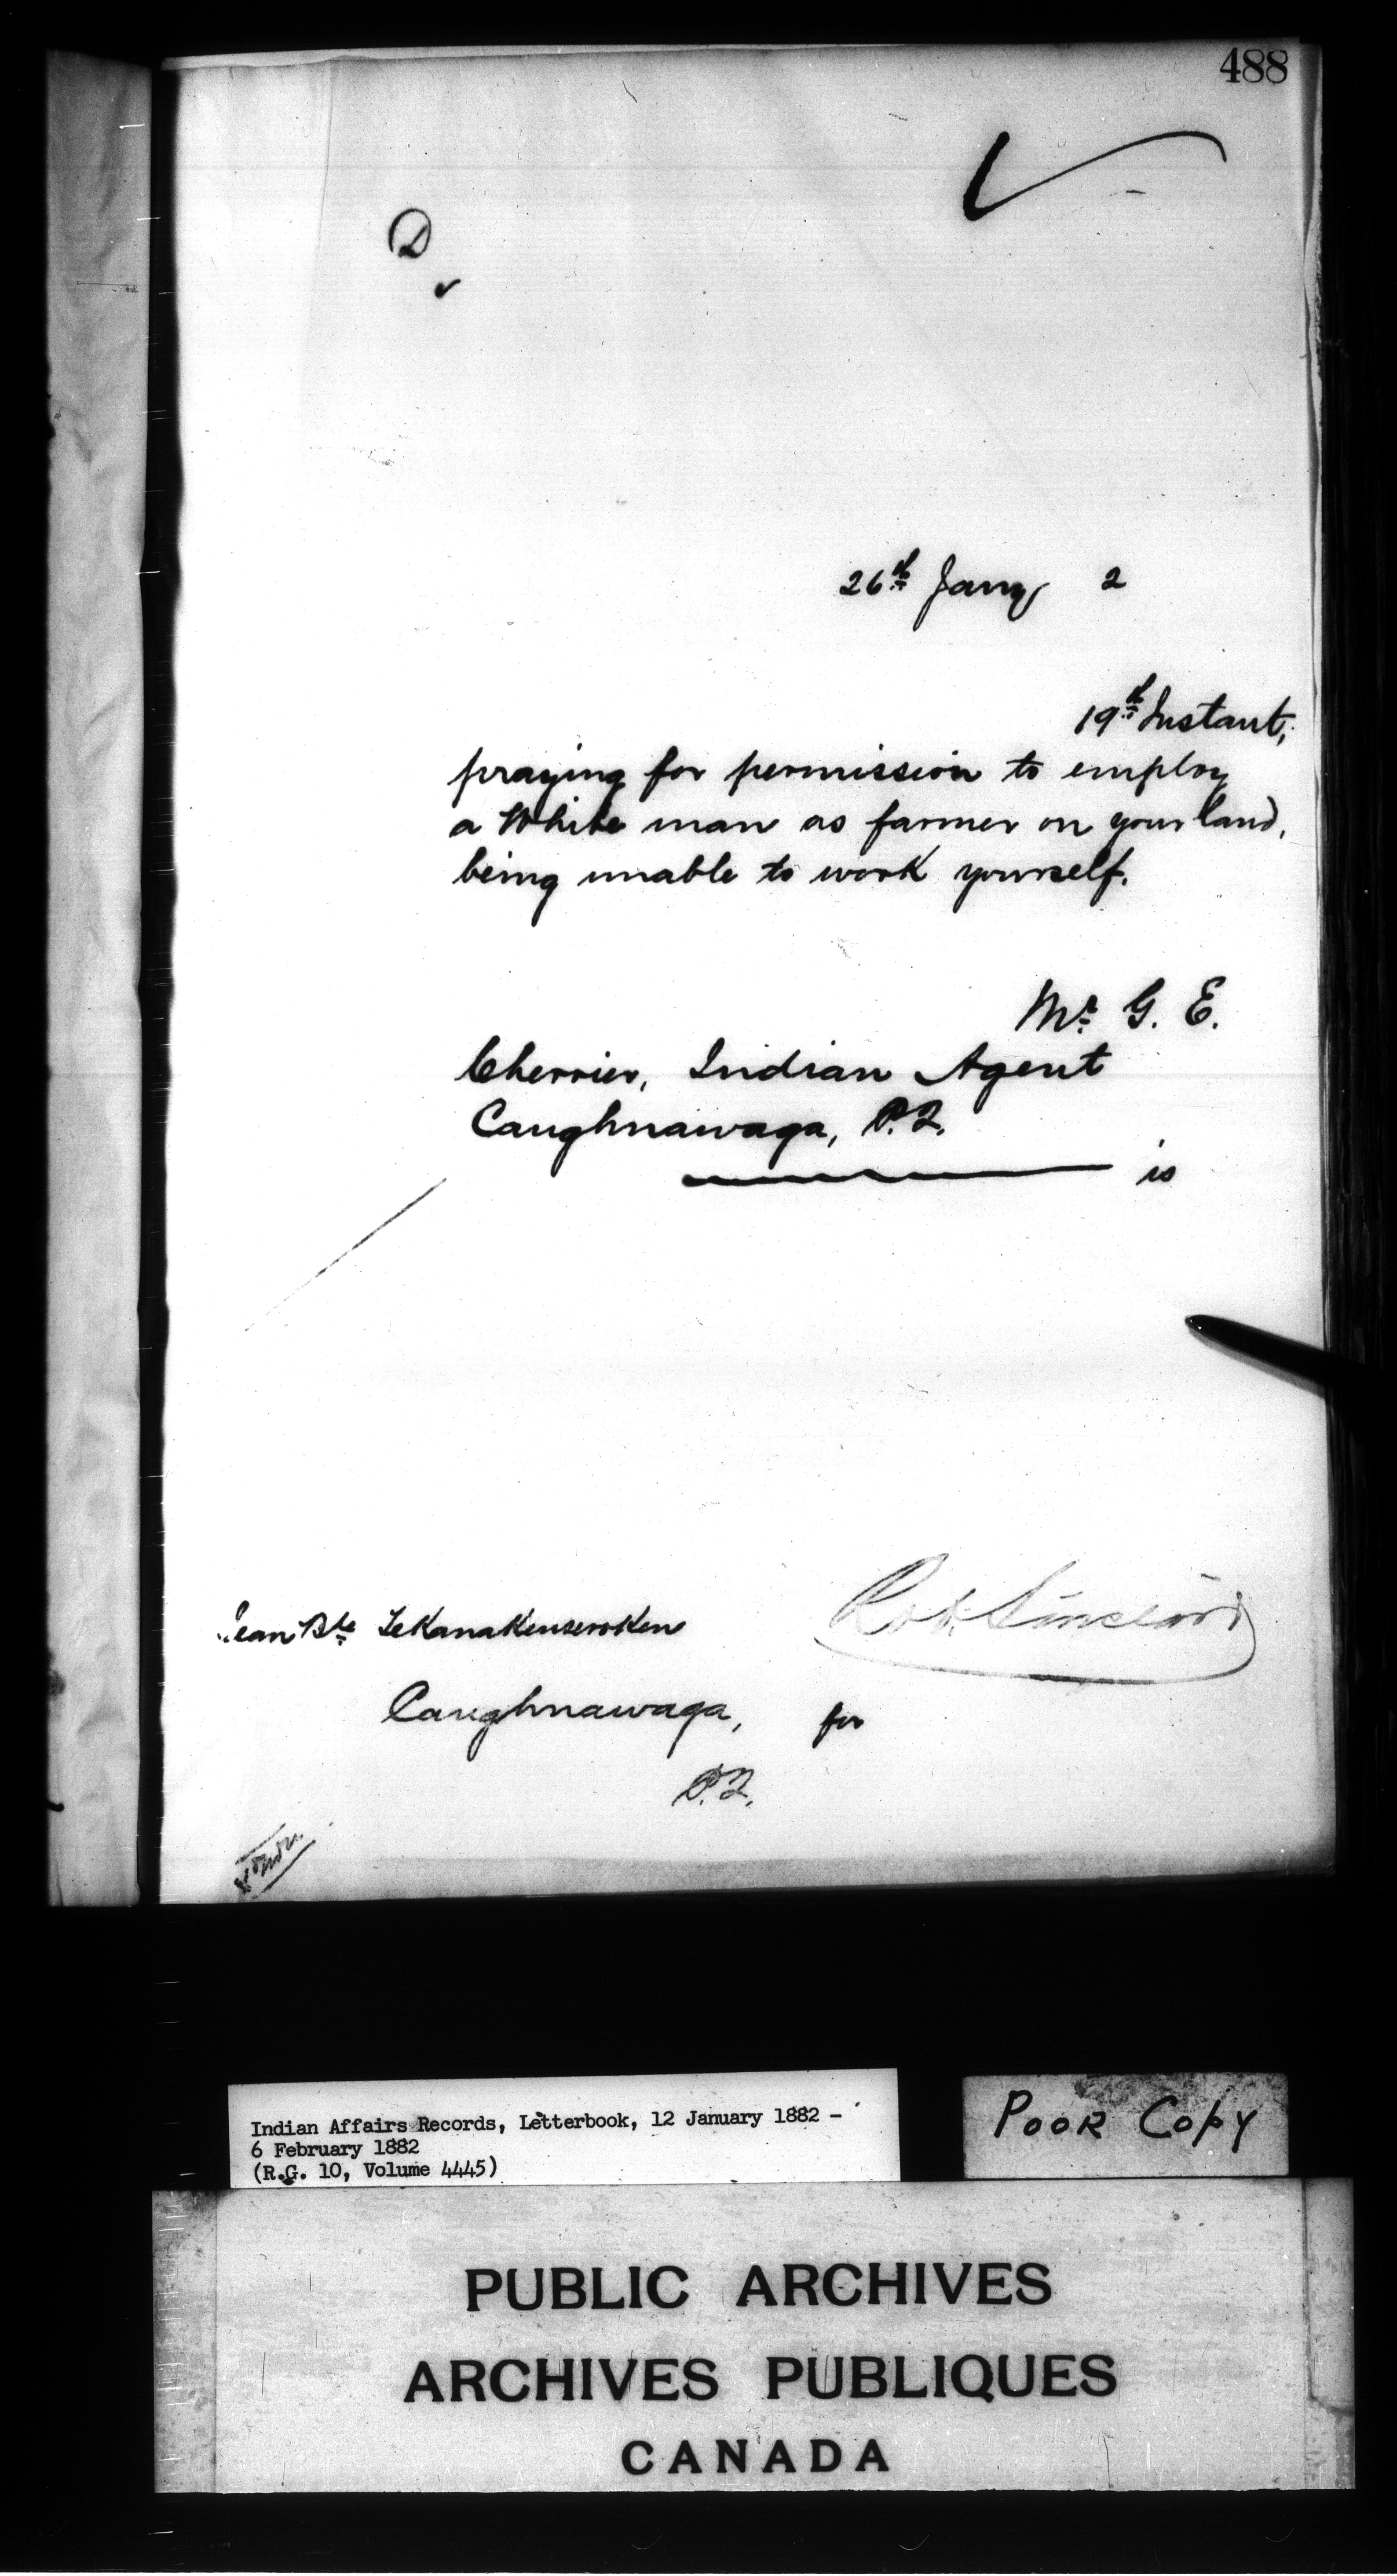 488
D
26th Jany 2
19th Instant,
praying for permission to employ
a White man as farmer on your land,
being unable to work yourself.
Mr. G. E.
Cherrier, Indian Agent
Caughnawaga, P.Q.
is
Rob. Sinclair
Jean Bte
Caughnawaga, for
P.Q.
Indian Affairs Records, Letterbook, 12 January 1882 -
6 February 1882
(R.G. 10, Volume 4445)
POOR COPY
PUBLIC ARCHIVES
ARCHIVES PUBLIQUES
CANADA